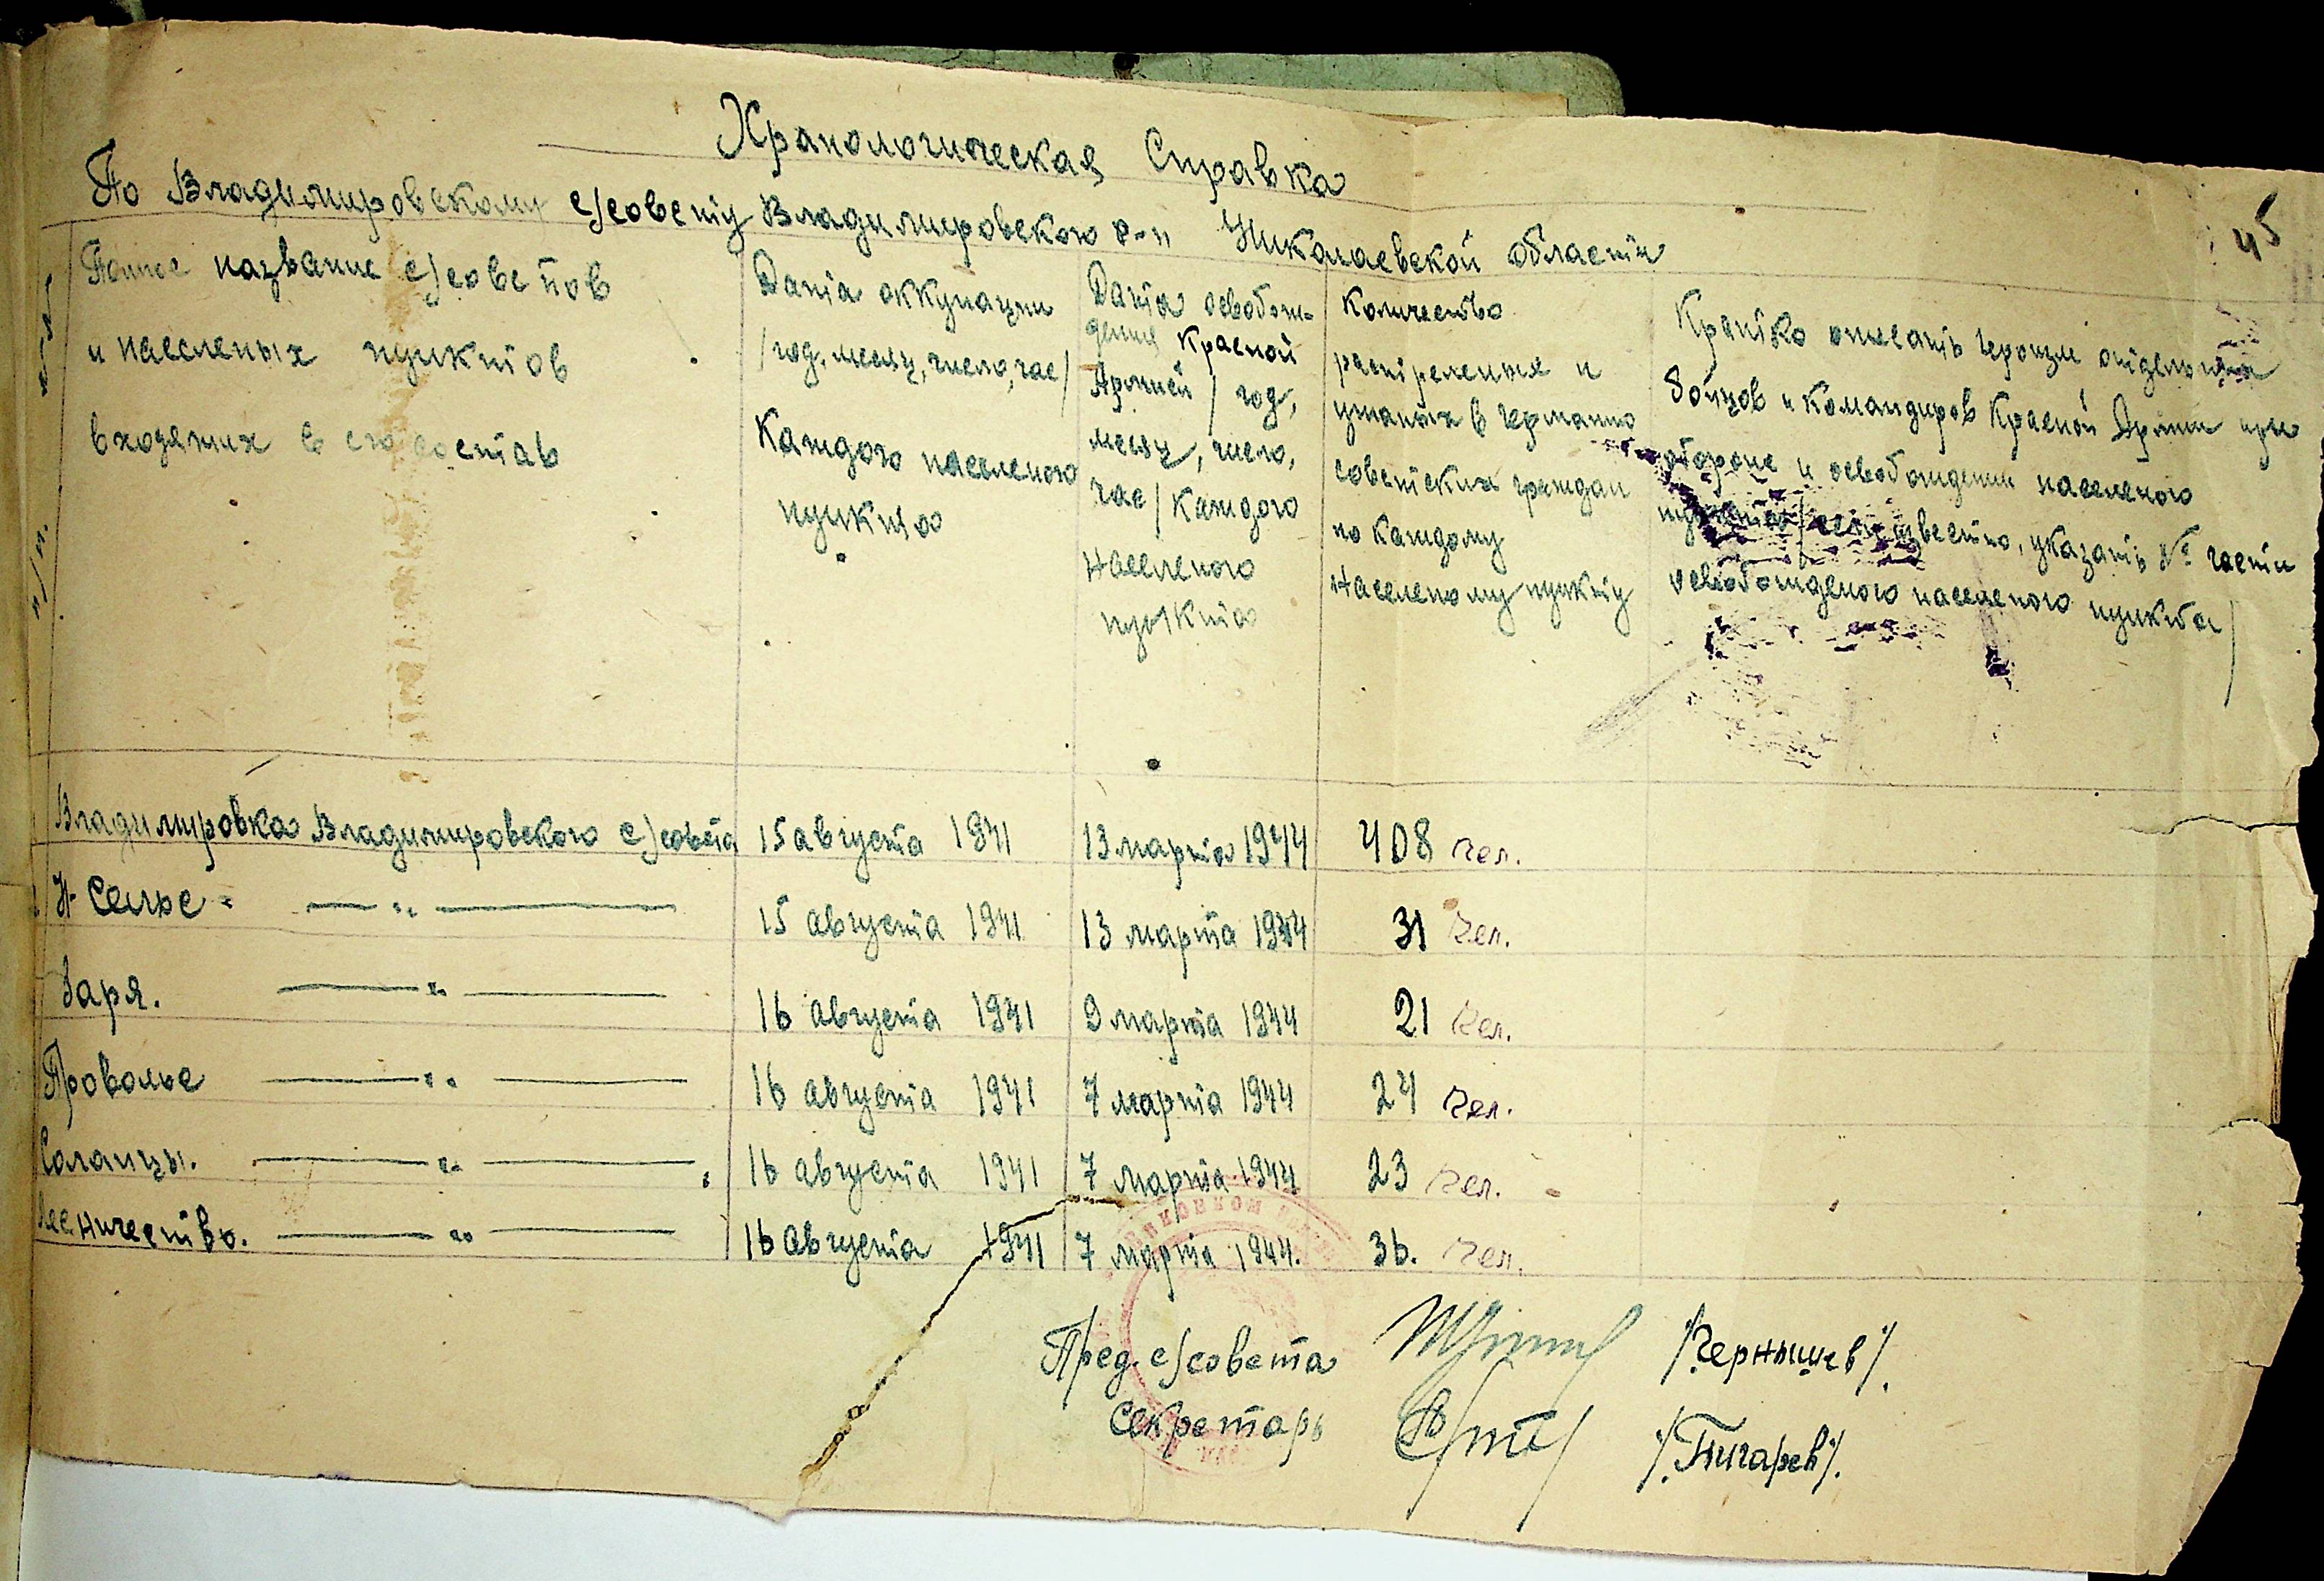 Хранологическая Справка
По Владимировскому с/совету Владимировского р-н Николаевской области
45
п/п.
Полное название с/советов
и населеных пунктов
входящих в его состав
Дата оккупации
/год, месяц, число, час/
Каждого населеного
пункта
Дата освобож-
дения Красной
Армией / год,
месяц, число,
час / Каждого
Населеного
пункта
Количество
растреленых и
угнаных в Германию
советских граждан
по Каждому
Населеному пункту
Кратко описать героизм отдельных
бойцов и командиров Красной Армии при
обороне и освобождении населеного
пункта /если известно, указать № части
освобожденого населеного пункта/
Владимировка Владимировского с/совета 15 августа 1941 13 марта 1944 408 чел.
Н-Селье - — " — 15 августа 1941 13 марта 1944 31 чел.
Заря. — " — 16 августа 1941 9 марта 1944 21 чел.
Проволье — " — 16 августа 1941 7 марта 1944 24 чел.
Саланцы. — " — 16 августа 1941 7 марта 1944 23 чел.
Лесничество. — " — 16 августа 1941 7 марта 1944. 36. чел.
Пред. с/совета /Чернышев/.
Секретарь /Пигарев/.